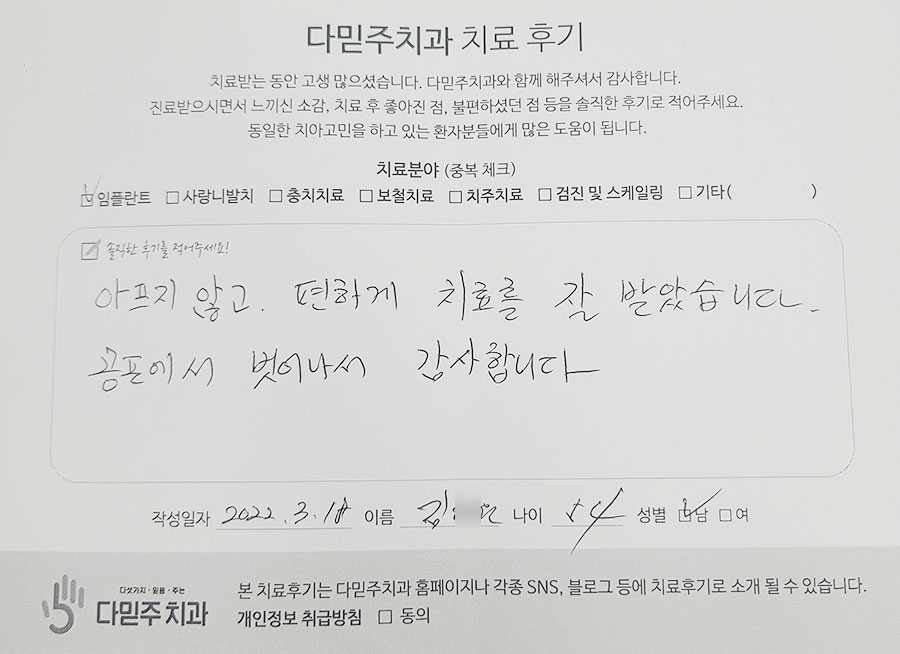 다믿주치과 치료 후기
치료받는 동안 고생 많으셨습니다. 다믿주치과와 함께 해주셔서 감사합니다.
진료받으시면서 느끼신 소감, 치료 후 좋아진 점, 불편하셨던 점 등을 솔직한 후기로 적어주세요.
동일한 치아고민을 하고 있는 환자분들에게 많은 도움이 됩니다.
치료분야 (중복 체크)
☑ 임플란트 □ 사랑니발치 □ 충치치료 □ 보철치료 □ 치주치료 □ 검진 및 스케일링 □ 기타( )
솔직한 후기를 적어주세요!
아프지 않고. 편하게 치료를 잘 받았습니다.
공포에서 벗어나서 감사합니다
작성일자 2022.3.18 이름 김 나이 54 성별 ☑남 □여
다섯가지·믿음·주는
다믿주치과
본 치료후기는 다믿주치과 홈페이지나 각종 SNS, 블로그 등에 치료후기로 소개 될 수 있습니다.
개인정보 취급방침 □ 동의